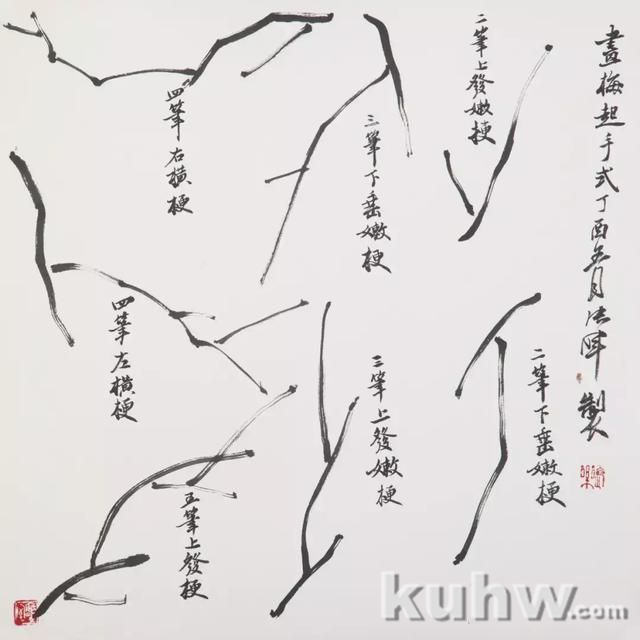 畫梅起手式丁酉月製
二筆上發嫩梗
二筆下垂嫩梗
三筆下垂嫩梗
三筆上發嫩梗
四筆右橫梗
四筆左橫梗
五筆上發梗
kuhw.com